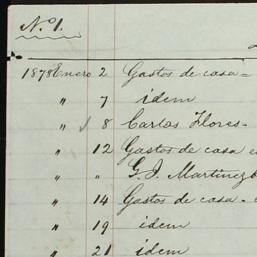 No. 1.
1878 Enero 2 Gastos de casa =
" 7 idem
" 8 Carlos Flores.
" 12 Gastos de casa
" " G. J. Martinez
" 14 Gastos de casa.
" 19 idem
" 21 idem